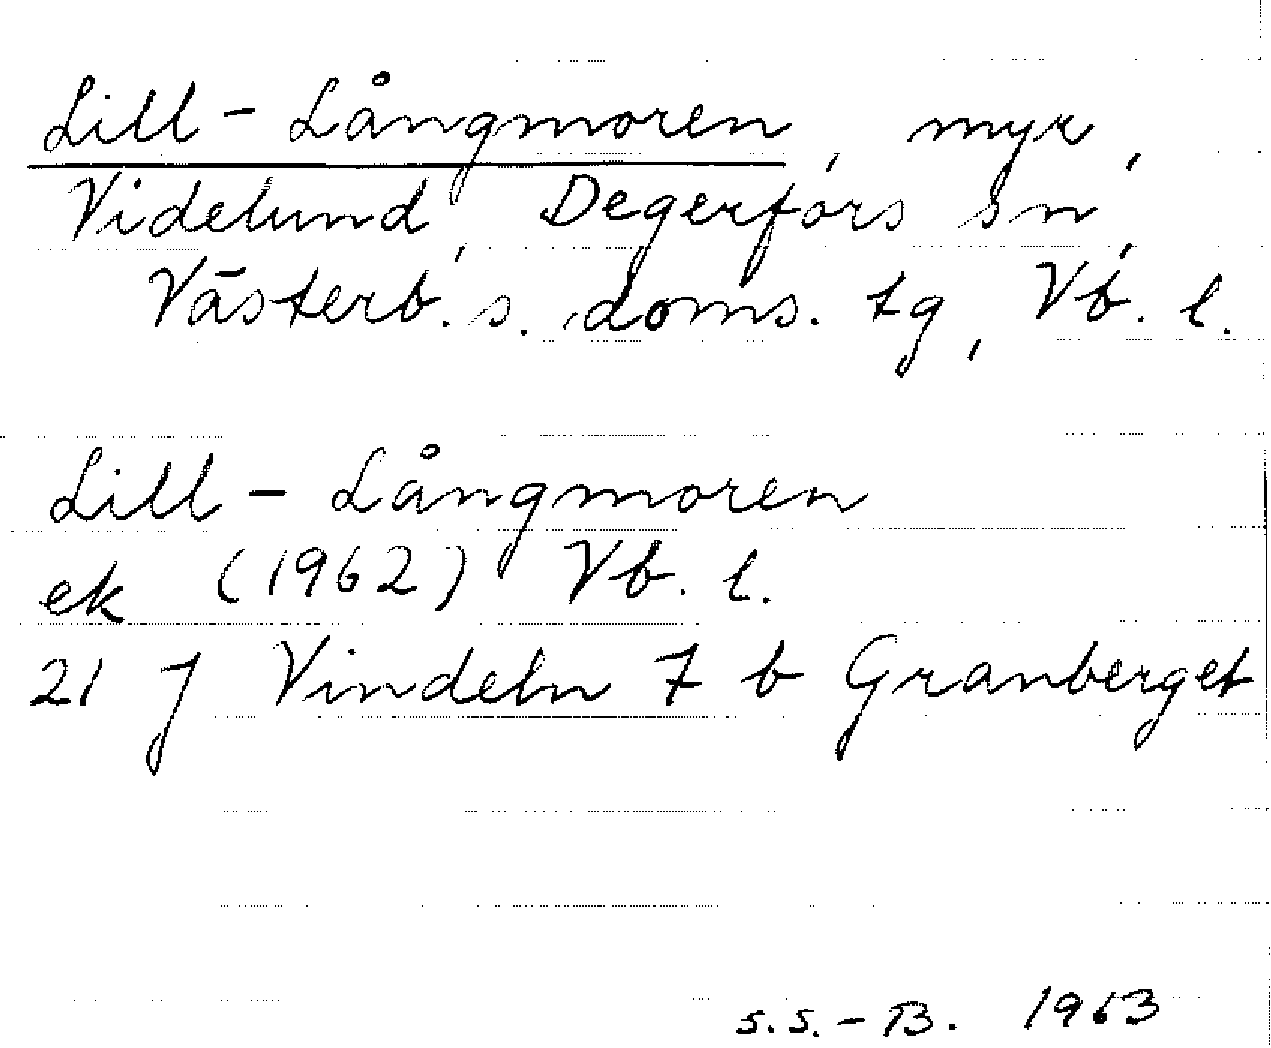 Lill-Långmoren, myr,
Videlund, Degerfors sn,
Västerb. s. doms. tg, Vb. l.
Lill-Långmoren
ek (1962) Vb. l.
21 J Vindeln 7 b Granberget
S.S.-B. 1963